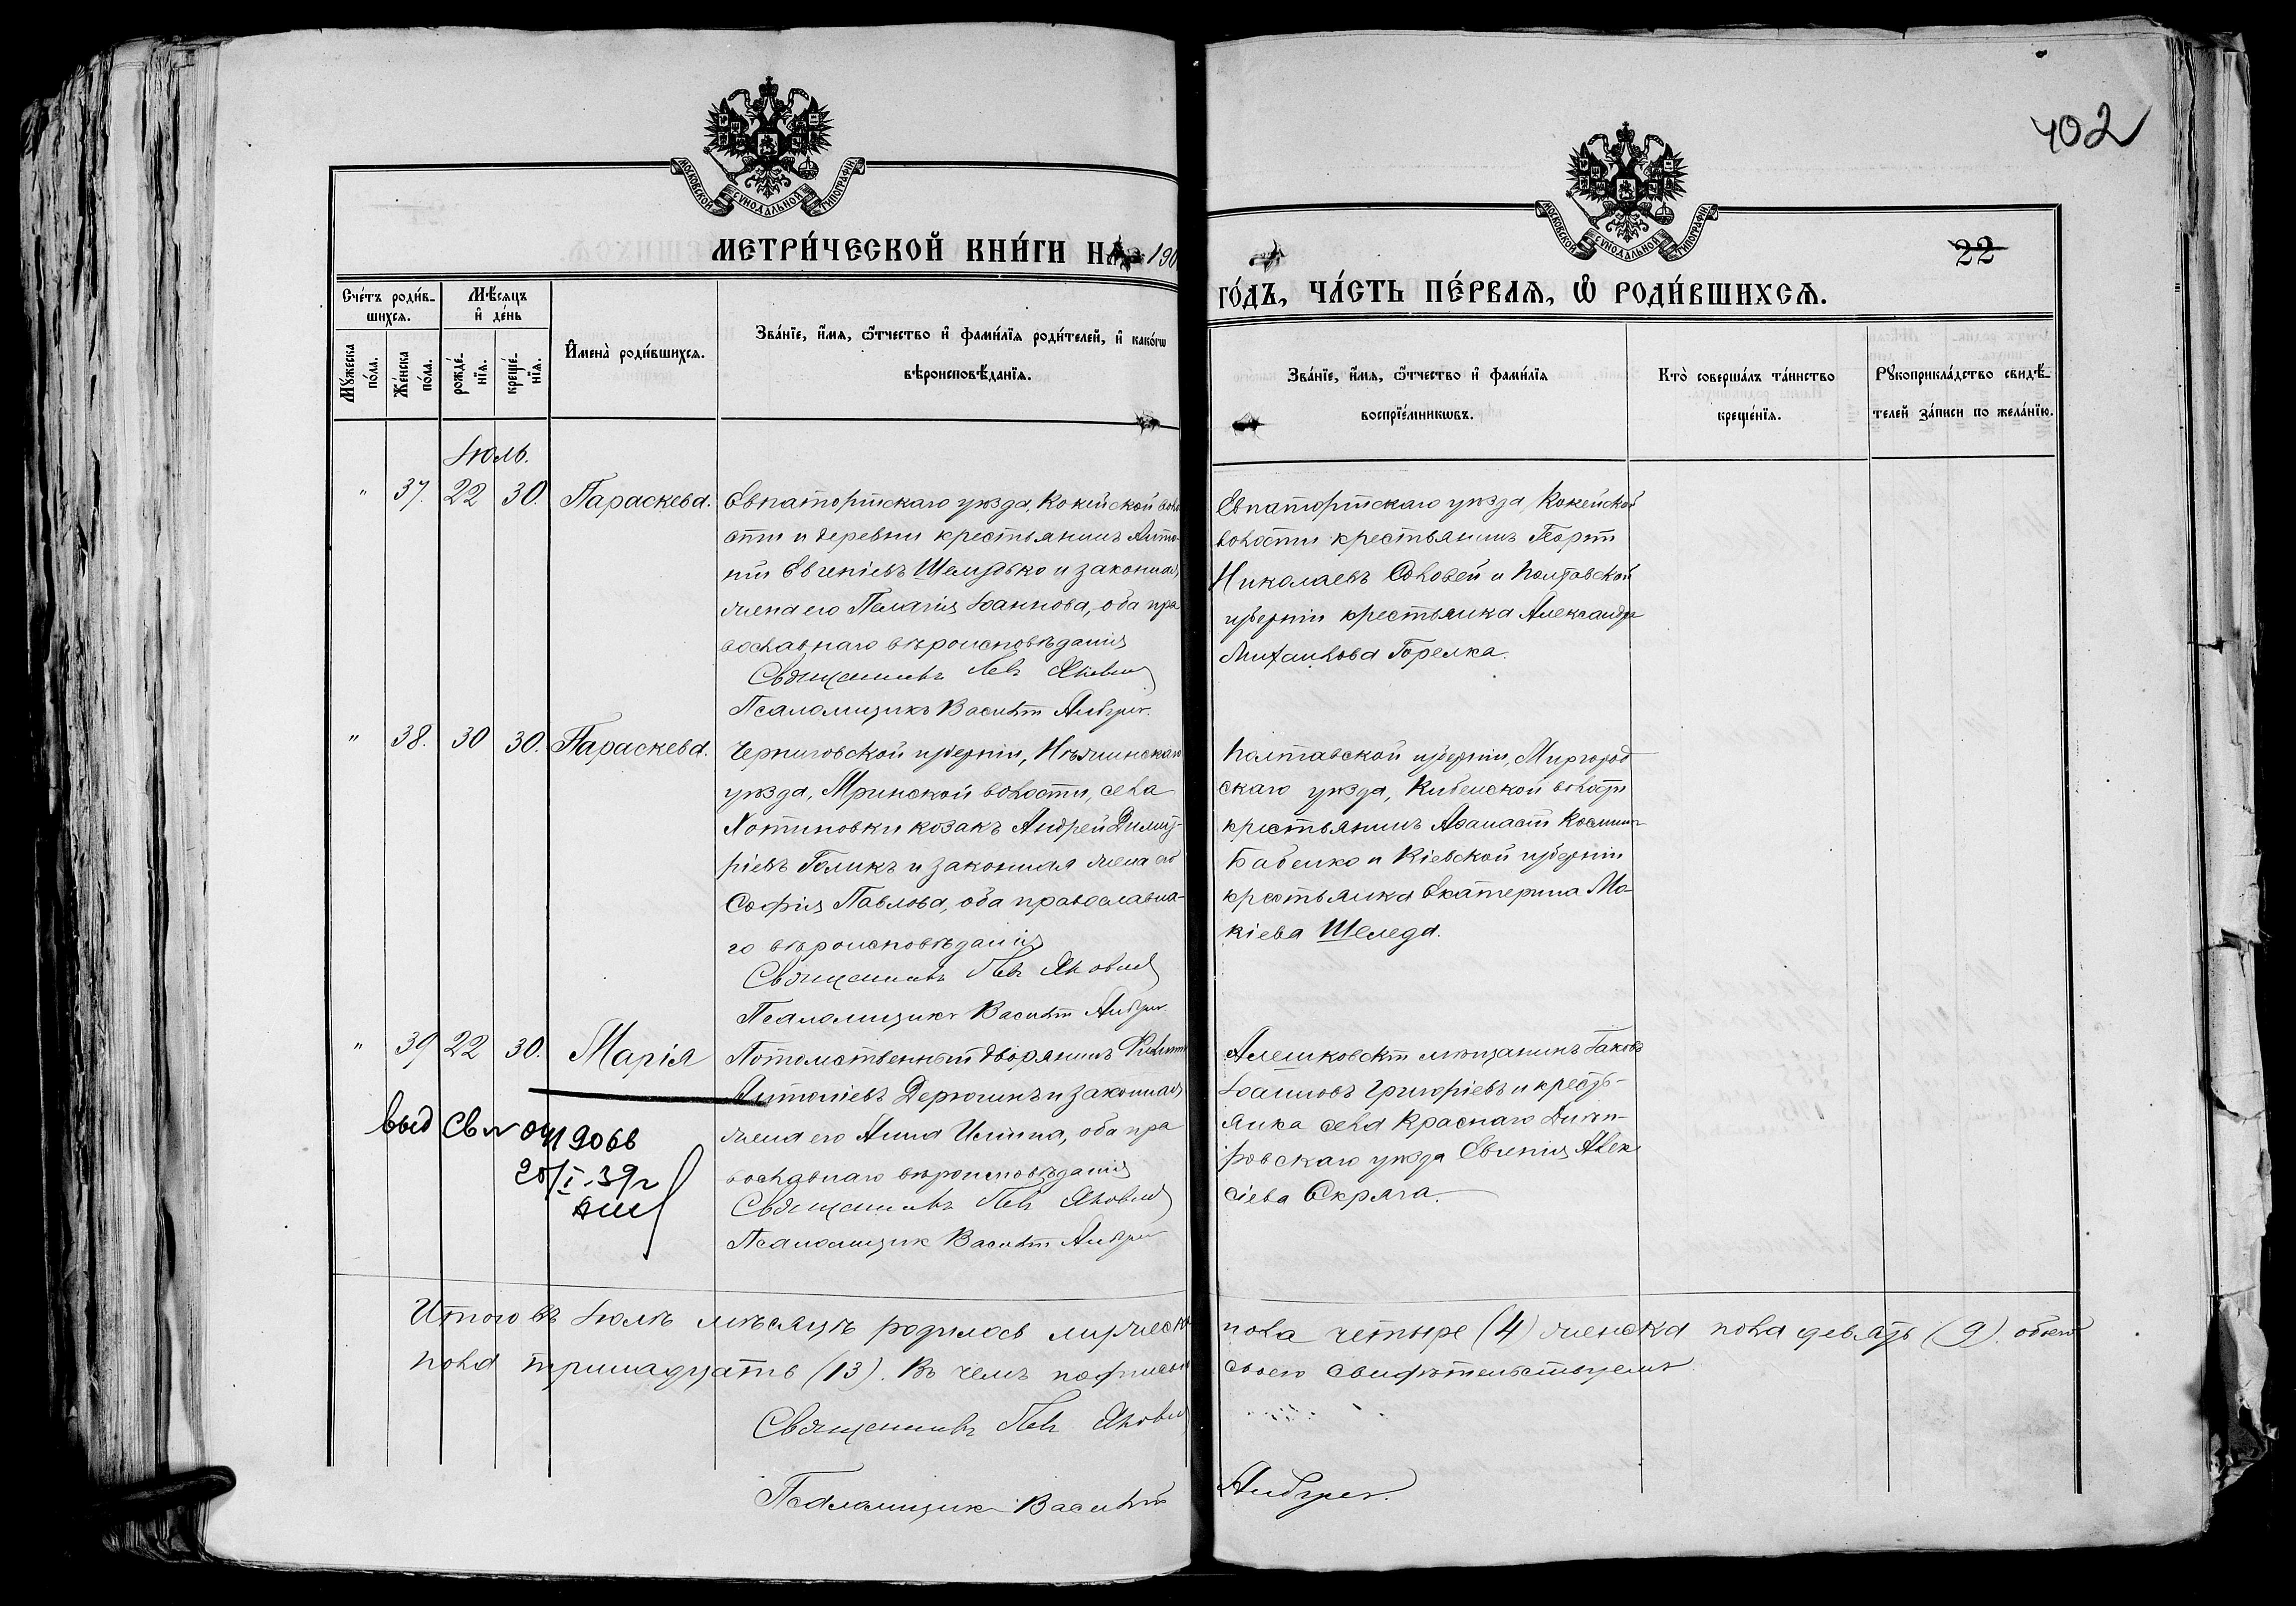 402
МОСКОВСКОЙ СУНОДАЛЬНОЙ ТИПОГРАФІИ
МОСКОВСКОЙ СУНОДАЛЬНОЙ ТИПОГРАФІИ
22
МЕТРИ́ЧЕСКОЙ КНИ́ГИ НА 190
ГО́ДЪ, ЧА́СТЬ ПЕ́РВАЯ, Ѡ РОДИ́ВШИХСЯ.
Сче́тъ роди́вшихся.
Мѣсяцъ и де́нь
Мꙋжеска по́ла.
Же́нска по́ла.
рожде́нїя.
креще́нїя.
Имена̀ роди́вшихся.
Зва́нїе, и́мя, ѻ́тчество и фами́лїя роди́телей, и како́гѡ
вѣроисповѣ́данїя.
Зва́нїе, и́мя, ѻ́тчество и фами́лїя
воспрїе́мникѡвъ.
Кто̀ соверша́лъ та́инство
креще́нїя.
Рꙋкоприкла́дство свидѣ́-
телей за́писи по жела́нїю.
Іюль.
" 37. 22 30. Параскева.
Евпаторійскаго уѣзда, Кокейской воло
сти и деревни крестьянинъ Анто-
ній Евгеніевъ и законная
жена его Пелагія Іоаннова, оба пра
вославнаго вѣроисповѣданія
Священникъ Левъ Якович
Псаломщикъ Василій
Евпаторійскаго уѣзда, Кокейской
волости крестьянинъ Георгій
Николаевъ Соловей и Полтавской
губерніи крестьянка Александра
Михаилова Горелка.
" 38. 30 30. Параскева.
Черниговской губерніи, Нѣжинскаго
уѣзда, Мринской волости, села
Хотиновки козакъ Андрей Димит-
ріевъ Голикъ и законная жена его
Софія Павлова, оба православна-
го вѣроисповѣданія
Священникъ Левъ Якович
Псаломщикъ Василій
Полтавской губерніи, Миргород
скаго уѣзда, волости
крестьянинъ Аѳанасій Космин
Бабенко и Кіевской губерніи
крестьянка Екатерина Мо-
кіева Шеледа.
" 39 22 30. Марія
Потомственный дворянинъ Филиппъ
Антоніевъ Дерюгинъ и законная
жена его Анна Ильина, оба пра
вославнаго вѣроисповѣданія
Священникъ Левъ Якович
Псаломщикъ Василій
Алешковскій мѣщанинъ Іаковъ
Іоанновъ Григоріевъ и кресть-
янка села Краснаго Днѣп-
ровскаго уѣзда Евгенія Алек
сіева Скряга.
выд св
20/I-39г
Итого въ Іюлѣ мѣсяцѣ родилось мужеска
пола четыре (4) женска пола девять (9). обоего
пола тринадцать (13). Въ чемъ подписью
своею свидѣтельствуемъ
Священникъ Левъ Якович
Псаломщикъ Василій